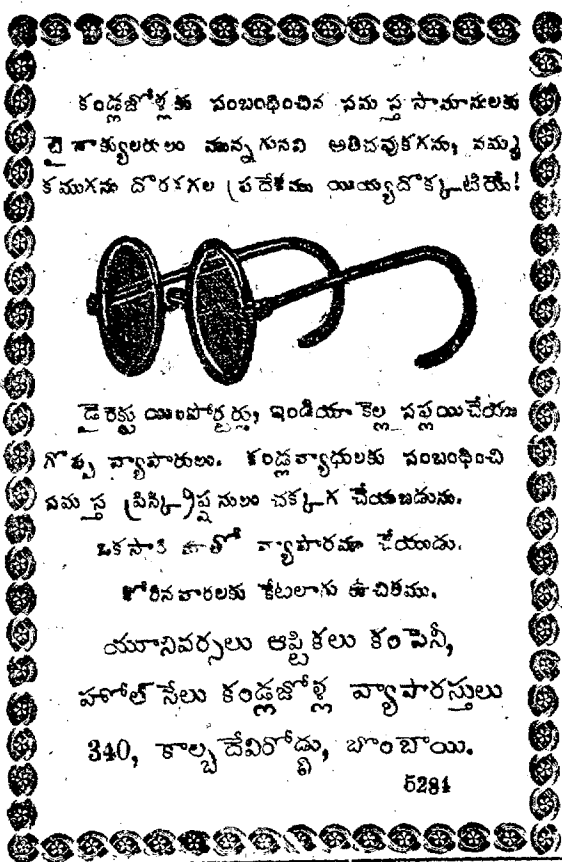 కండ్లజోళ్లకు సంబంధించిన సమస్త సామానులకు
బైనాక్యులరులం మున్నగునవి అతిచవుకగను, నమ్మ
కముగను దొరకగల ప్రదేశము యియ్యదొక్కటియే!
డైరెక్టు యింపోర్టర్లు, ఇండియాకెల్ల సప్లయిచేయు
గొప్ప వ్యాపారులు. కండ్లవ్యాధులకు సంబంధించి
సమస్త ప్రిస్క్రిప్షనులం చక్కగ చేయబడును.
ఒకసారి మాతో వ్యాపారము చేయుడు.
కోరినవారలకు కేటలాగు ఉచితము.
యూనివర్సలు ఆప్టికలు కంపెనీ,
హోల్‌సేలు కండ్లజోళ్ల వ్యాపారస్తులు
340, కాల్బదేవిరోడ్డు, బొంబాయి.
5284